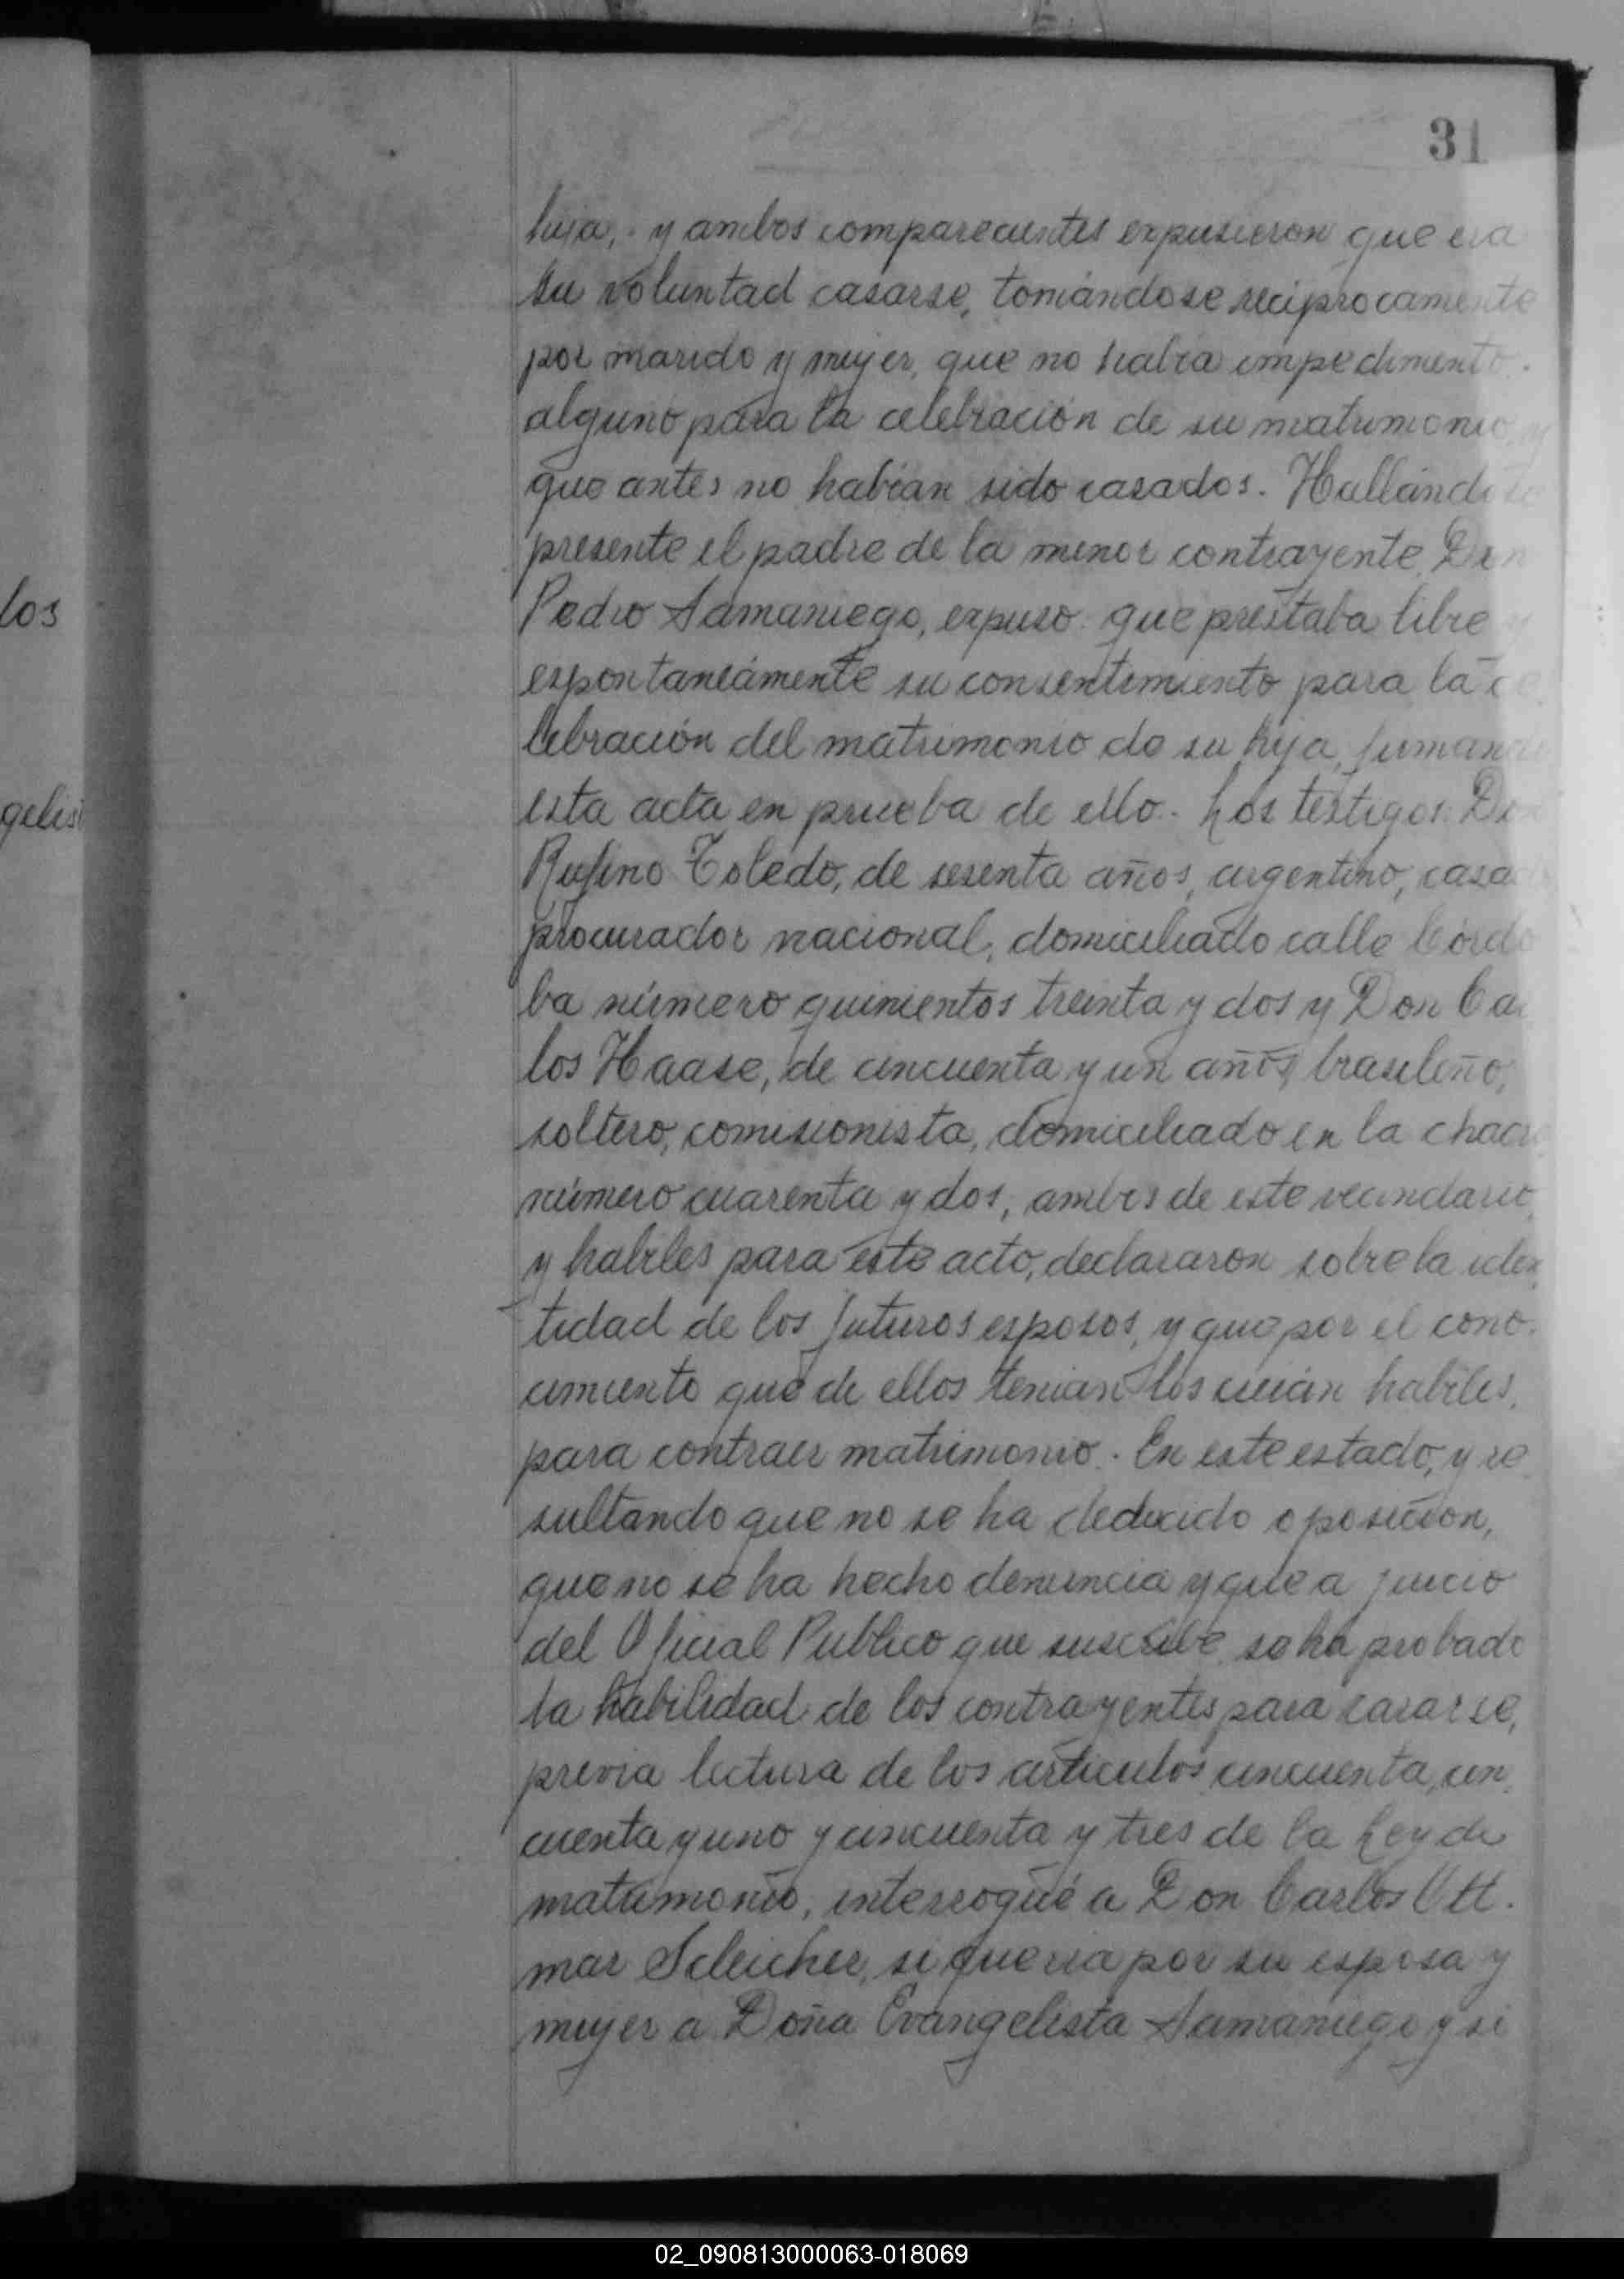 31
hija, y ambos comparecientes expusieron que era
su voluntad casarse, tomándose reciprocamente
por marido y mujer, que no habia impedimento
alguno para la celebración de su matrimonio, y
que antes no habian sido casados. Hallándose
presente el padre de la menor contrayente, Don
Pedro Samaniego, expuso que prestaba libre y
espontaneámente su consentimiento para la ce
lebración del matrimonio de su hija, firmando
esta acta en prueba de ello. Los testigos: Don
Rufino Toledo, de sesenta años, argentino, casado
procurador nacional, domiciliado calle Córdo
ba número quinientos treinta y dos y Don Car
los Haase, de cincuenta y un años, brasileño,
soltero, comisionista, domiciliado en la chacra
número cuarenta y dos, ambos de este vecindario,
y habiles para este acto, declararon sobre la iden
tidad de los futuros esposos, y que por el cono-
cimiento que de ellos tenian los creian habiles,
para contraer matrimonio. En este estado, y re
sultando que no se ha deducido oposicion,
que no se ha hecho denuncia y que a juicio
del Oficial Publico que suscribe, se ha probado
la habilidad de los contrayentes para casarse,
previa lectura de los articulos cincuenta, cin
cuenta y uno y cincuenta y tres de la Ley de
matrimonio, interrogué a Don Carlos Ott-
mar Scleicher, si queria por su esposa y
mujer a Doña Evangelista Samaniego y si
los
gelist
02_090813000063-018069